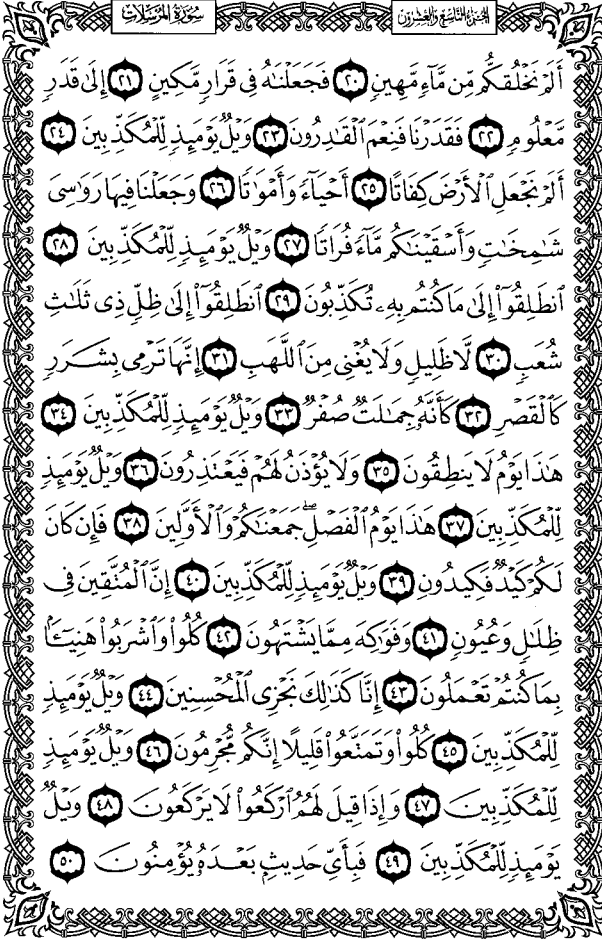 سُورَةُ المُرْسَلَات
الجُزْءُ التَّاسِعُ وَالعِشْرُونَ
أَلَمْ نَخْلُقكُّم مِّن مَّآءٍ مَّهِينٍ ٢٠ فَجَعَلْنَٰهُ فِى قَرَارٍ مَّكِينٍ ٢١ إِلَىٰ قَدَرٍ
مَّعْلُومٍ ٢٢ فَقَدَرْنَا فَنِعْمَ ٱلْقَٰدِرُونَ ٢٣ وَيْلٌ يَوْمَئِذٍ لِّلْمُكَذِّبِينَ ٢٤
أَلَمْ نَجْعَلِ ٱلْأَرْضَ كِفَاتًا ٢٥ أَحْيَآءً وَأَمْوَٰتًا ٢٦ وَجَعَلْنَا فِيهَا رَوَٰسِىَ
شَٰمِخَٰتٍ وَأَسْقَيْنَٰكُم مَّآءً فُرَاتًا ٢٧ وَيْلٌ يَوْمَئِذٍ لِّلْمُكَذِّبِينَ ٢٨
ٱنطَلِقُوٓا۟ إِلَىٰ مَا كُنتُم بِهِۦ تُكَذِّبُونَ ٢٩ ٱنطَلِقُوٓا۟ إِلَىٰ ظِلٍّ ذِى ثَلَٰثِ
شُعَبٍ ٣٠ لَّا ظَلِيلٍ وَلَا يُغْنِى مِنَ ٱللَّهَبِ ٣١ إِنَّهَا تَرْمِى بِشَرَرٍ
كَٱلْقَصْرِ ٣٢ كَأَنَّهُۥ جِمَٰلَتٌ صُفْرٌ ٣٣ وَيْلٌ يَوْمَئِذٍ لِّلْمُكَذِّبِينَ ٣٤
هَٰذَا يَوْمُ لَا يَنطِقُونَ ٣٥ وَلَا يُؤْذَنُ لَهُمْ فَيَعْتَذِرُونَ ٣٦ وَيْلٌ يَوْمَئِذٍ
لِّلْمُكَذِّبِينَ ٣٧ هَٰذَا يَوْمُ ٱلْفَصْلِ ۖ جَمَعْنَٰكُمْ وَٱلْأَوَّلِينَ ٣٨ فَإِن كَانَ
لَكُمْ كَيْدٌ فَكِيدُونِ ٣٩ وَيْلٌ يَوْمَئِذٍ لِّلْمُكَذِّبِينَ ٤٠ إِنَّ ٱلْمُتَّقِينَ فِى
ظِلَٰلٍ وَعُيُونٍ ٤١ وَفَوَٰكِهَ مِمَّا يَشْتَهُونَ ٤٢ كُلُوا۟ وَٱشْرَبُوا۟ هَنِيٓـًٔۢا
بِمَا كُنتُمْ تَعْمَلُونَ ٤٣ إِنَّا كَذَٰلِكَ نَجْزِى ٱلْمُحْسِنِينَ ٤٤ وَيْلٌ يَوْمَئِذٍ
لِّلْمُكَذِّبِينَ ٤٥ كُلُوا۟ وَتَمَتَّعُوا۟ قَلِيلًا إِنَّكُم مُّجْرِمُونَ ٤٦ وَيْلٌ يَوْمَئِذٍ
لِّلْمُكَذِّبِينَ ٤٧ وَإِذَا قِيلَ لَهُمُ ٱرْكَعُوا۟ لَا يَرْكَعُونَ ٤٨ وَيْلٌ
يَوْمَئِذٍ لِّلْمُكَذِّبِينَ ٤٩ فَبِأَىِّ حَدِيثٍۭ بَعْدَهُۥ يُؤْمِنُونَ ٥٠